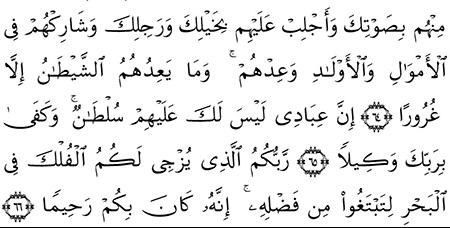 مِنْهُم بِصَوْتِكَ وَأَجْلِبْ عَلَيْهِم بِخَيْلِكَ وَرَجِلِكَ وَشَارِكْهُمْ فِى
ٱلْأَمْوَٰلِ وَٱلْأَوْلَٰدِ وَعِدْهُمْ ۚ وَمَا يَعِدُهُمُ ٱلشَّيْطَٰنُ إِلَّا
غُرُورًا ﴿٦٤﴾ إِنَّ عِبَادِى لَيْسَ لَكَ عَلَيْهِمْ سُلْطَٰنٌ ۚ وَكَفَىٰ
بِرَبِّكَ وَكِيلًا ﴿٦٥﴾ رَّبُّكُمُ ٱلَّذِى يُزْجِى لَكُمُ ٱلْفُلْكَ فِى
ٱلْبَحْرِ لِتَبْتَغُوا۟ مِن فَضْلِهِۦٓ ۚ إِنَّهُۥ كَانَ بِكُمْ رَحِيمًا ﴿٦٦﴾